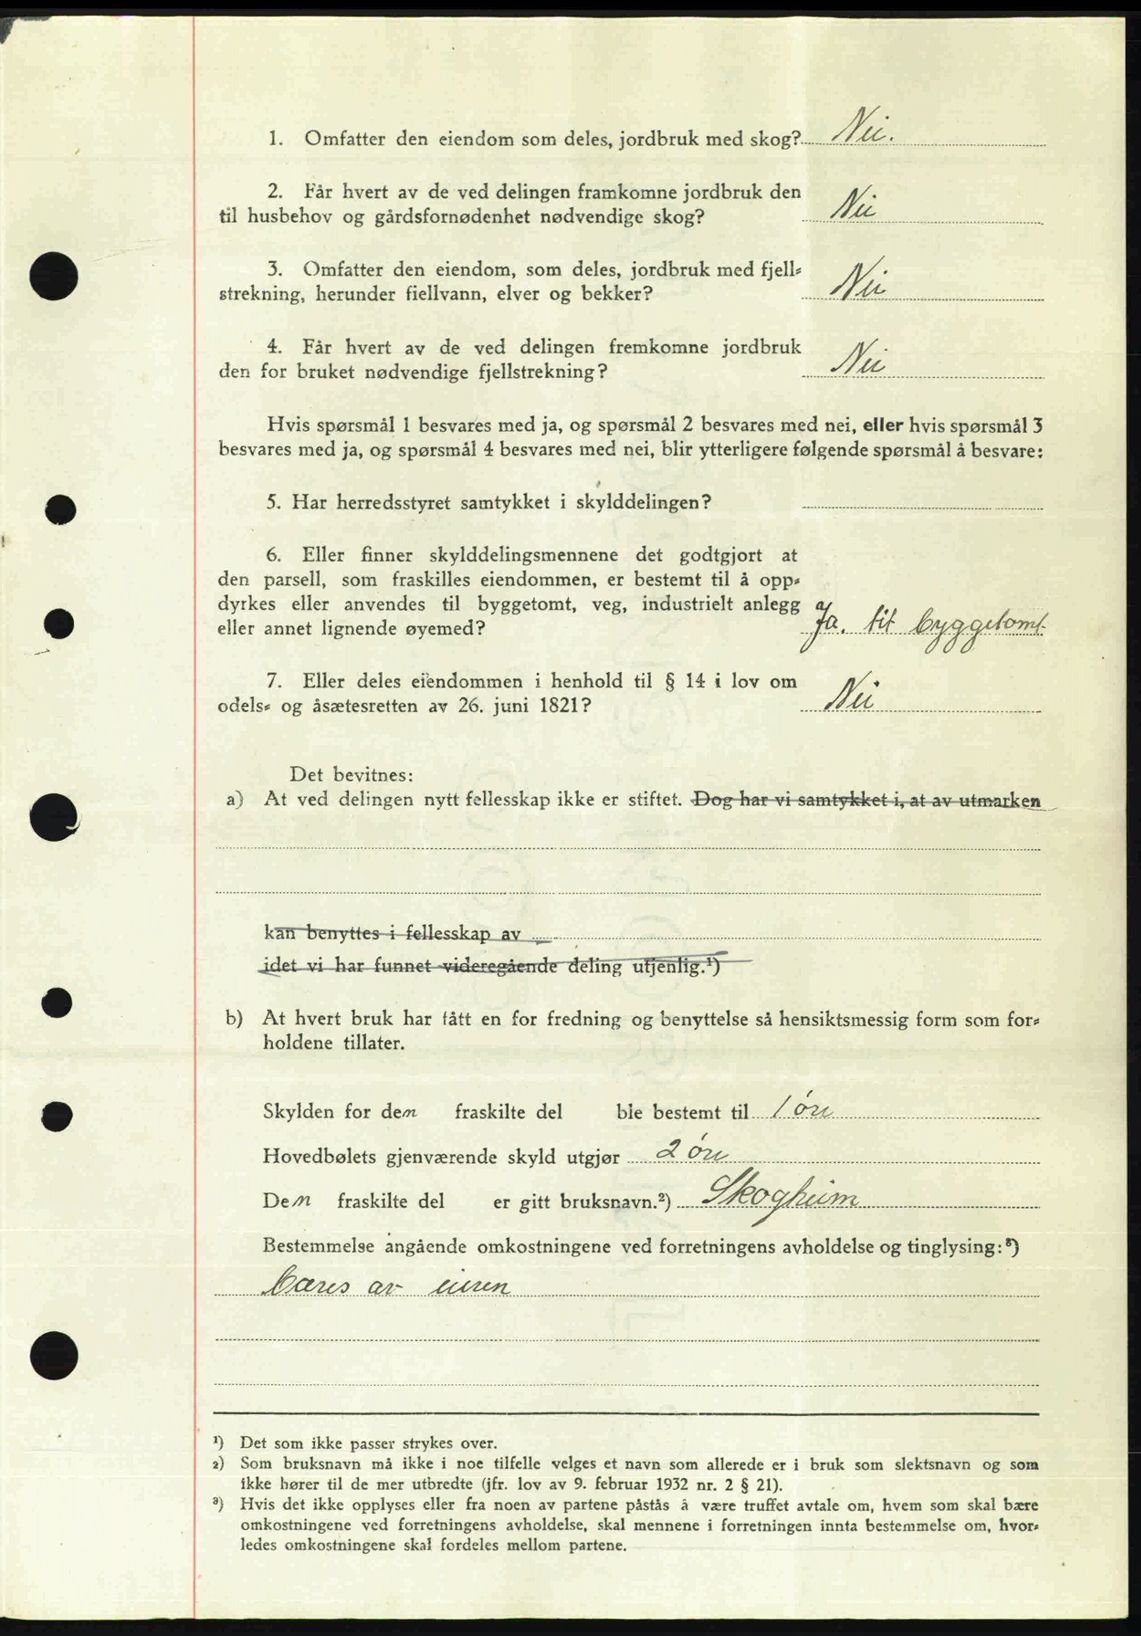 1. Omfatter den eiendom som deles, jordbruk med skog? Nei.
2. Får hvert av de ved delingen framkomne jordbruk den
til husbehov og gårdsfornødenhet nødvendige skog? Nei
3. Omfatter den eiendom, som deles, jordbruk med fjell-
strekning, herunder fiellvann, elver og bekker? Nei
4. Får hvert av de ved delingen fremkomne jordbruk
den for bruket nødvendige fjellstrekning? Nei
Hvis spørsmål 1 besvares med ja, og spørsmål 2 besvares med nei, eller hvis spørsmål 3
besvares med ja, og spørsmål 4 besvares med nei, blir ytterligere følgende spørsmål å besvare:
5. Har herredsstyret samtykket i skylddelingen?
6. Eller finner skylddelingsmennene det godtgjort at
den parsell, som fraskilles eiendommen, er bestemt til å opp-
dyrkes eller anvendes til byggetomt, veg, industrielt anlegg
eller annet lignende øyemed? Ja. til byggetomt.
7. Eller deles eiendommen i henhold til § 14 i lov om
odels- og åsætesretten av 26. juni 1821? Nei
Det bevitnes:
a) At ved delingen nytt fellesskap ikke er stiftet. Dog har vi samtykket i, at av utmarken
kan benyttes i fellesskap av
idet vi har funnet videregående deling utjenlig.¹)
b) At hvert bruk har fått en for fredning og benyttelse så hensiktsmessig form som for-
holdene tillater.
Skylden for den fraskilte del ble bestemt til 1 øre
Hovedbølets gjenværende skyld utgjør 2 øre
Den fraskilte del er gitt bruksnavn.²) Skogheim
Bestemmelse angående omkostningene ved forretningens avholdelse og tinglysing:³)
Bæres av eieren
¹) Det som ikke passer strykes over.
²) Som bruksnavn må ikke i noe tilfelle velges et navn som allerede er i bruk som slektsnavn og som
ikke hører til de mer utbredte (jfr. lov av 9. februar 1932 nr. 2 § 21).
³) Hvis det ikke opplyses eller fra noen av partene påstås å være truffet avtale om, hvem som skal bære
omkostningene ved forretningens avholdelse, skal mennene i forretningen innta bestemmelse om, hvor-
ledes omkostningene skal fordeles mellom partene.